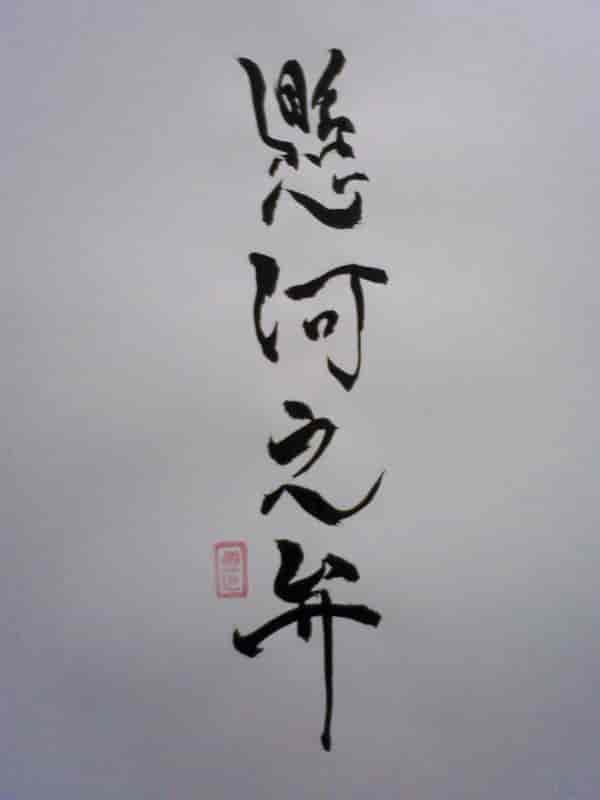 懸河之弁